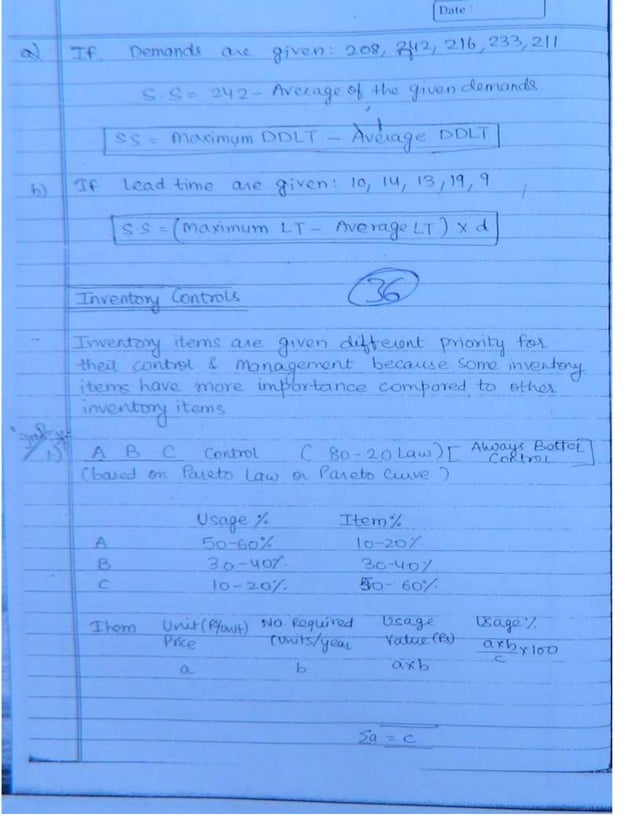 Date :
a) If Demands are given: 208, 242, 216, 233, 211
S.S = 242 - Average of the given demands
SS = Maximum DDLT - Average DDLT
b) If Lead time are given: 10, 14, 13, 19, 9
S.S = (Maximum LT - Average LT) x d
Inventory Controls
36
- Inventory items are given different priority for
their control & Management because some inventory
items have more importance compared to other
inventory items
1) A B C Control (80-20 Law) [Always Better Control]
(based on Pareto Law or Pareto Curve)
Usage % Item %
A 50-60% 10-20%
B 30-40% 30-40%
C 10-20% 50-60%
Item Unit (Rs/unit) No. Required Usage Usage %
Price (units/year Value (Rs) axb/c x 100
a b axb
Σa = c